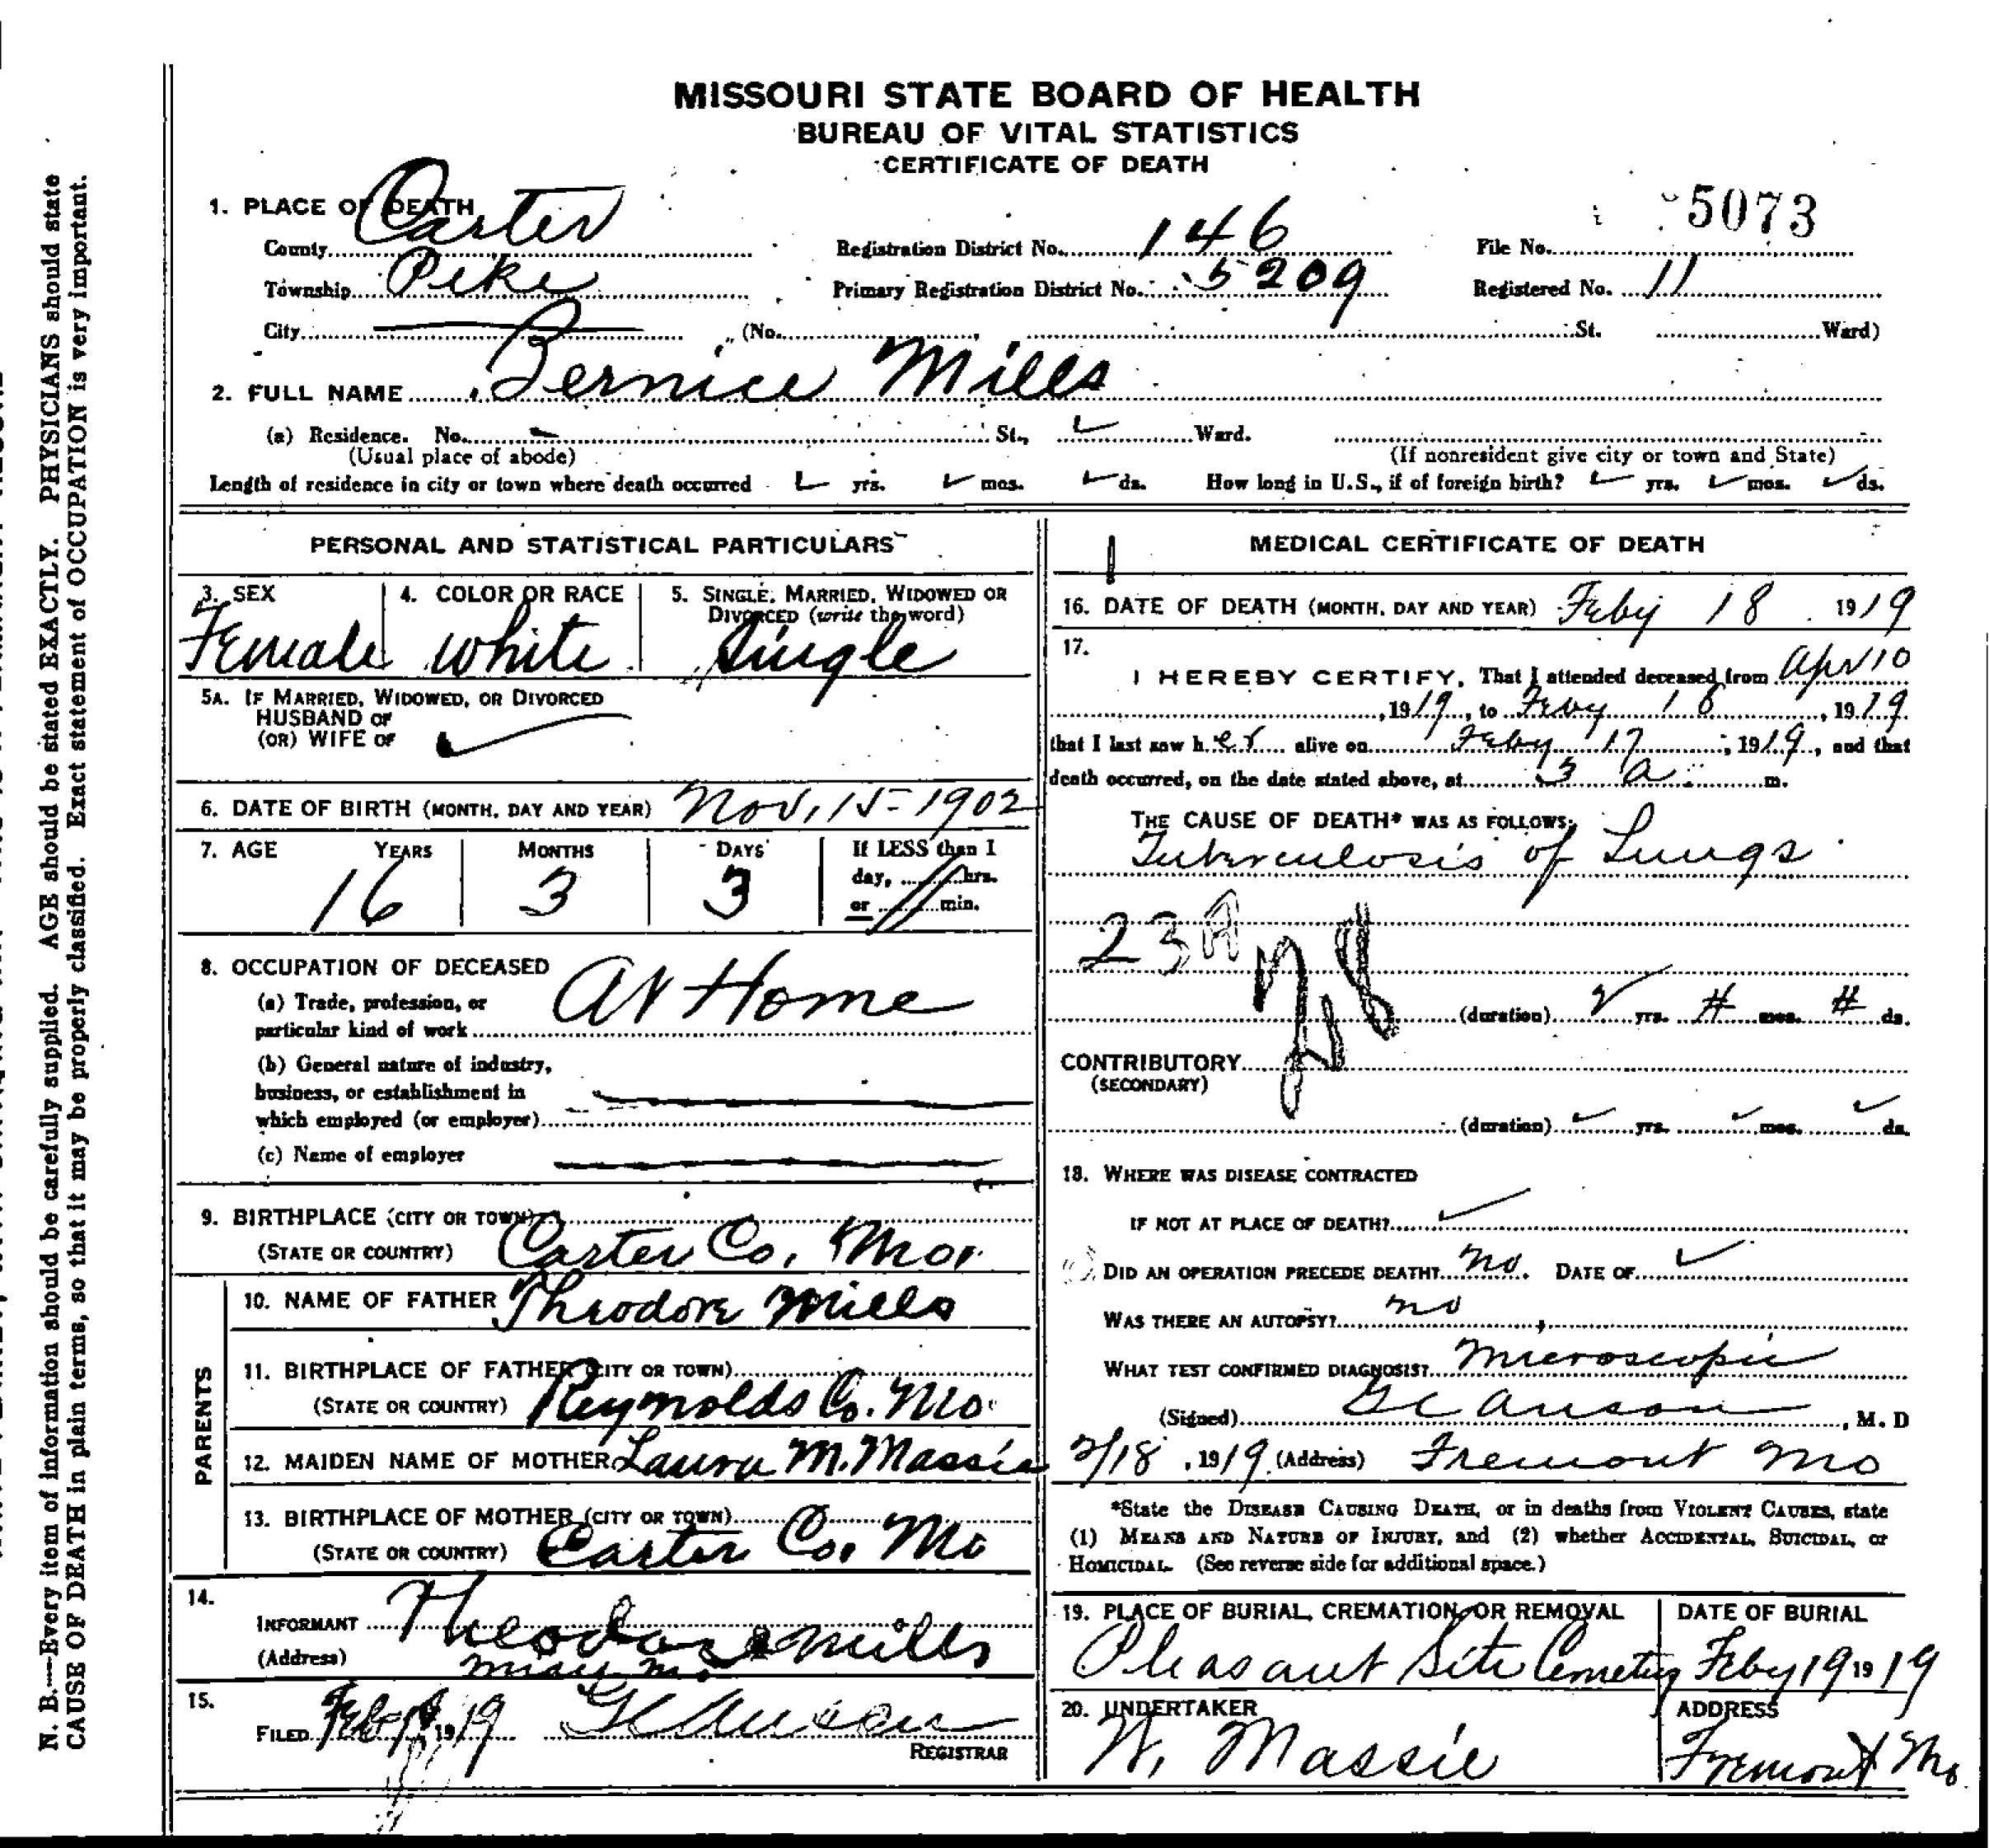 MISSOURI STATE BOARD OF HEALTH
BUREAU OF VITAL STATISTICS
CERTIFICATE OF DEATH
N. B.—Every item of information should be carefully supplied. AGE should be stated EXACTLY. PHYSICIANS should state
CAUSE OF DEATH in plain terms, so that it may be properly classified. Exact statement of OCCUPATION is very important.
1. PLACE OF DEATH
County Carter Registration District No. 146 File No. 5073
Township Pike Primary Registration District No. 5209 Registered No. 11
City (No. , St. Ward)
2. FULL NAME Bernice Mills
(a) Residence. No. St., Ward.
(Usual place of abode) (If nonresident give city or town and State)
Length of residence in city or town where death occurred yrs. mos. ds. How long in U.S., if of foreign birth? yrs. mos. ds.
PERSONAL AND STATISTICAL PARTICULARS
3. SEX 4. COLOR OR RACE 5. SINGLE, MARRIED, WIDOWED OR
DIVORCED (write the word)
Female white Single
5A. IF MARRIED, WIDOWED, OR DIVORCED
HUSBAND OF
(OR) WIFE OF
6. DATE OF BIRTH (MONTH, DAY AND YEAR) Nov, 15-1902
7. AGE YEARS MONTHS DAYS If LESS than 1
day, hrs.
or min.
16 3 3
8. OCCUPATION OF DECEASED
(a) Trade, profession, or
particular kind of work At Home
(b) General nature of industry,
business, or establishment in
which employed (or employer)
(c) Name of employer
9. BIRTHPLACE (CITY OR TOWN)
(STATE OR COUNTRY) Carter Co, Mo.
PARENTS
10. NAME OF FATHER Theodore Mills
11. BIRTHPLACE OF FATHER (CITY OR TOWN)
(STATE OR COUNTRY) Reynolds Co. Mo
12. MAIDEN NAME OF MOTHER Laura M. Massie
13. BIRTHPLACE OF MOTHER (CITY OR TOWN)
(STATE OR COUNTRY) Carter Co, Mo
14.
INFORMANT Theodore Mills
(Address) Mo
15.
FILED Feb 1919
REGISTRAR
MEDICAL CERTIFICATE OF DEATH
16. DATE OF DEATH (MONTH, DAY AND YEAR) Feby 18 1919
17.
I HEREBY CERTIFY, That I attended deceased from Apr 10
, 1919, to Feby 18, 1919
that I last saw her alive on Feby 17, 1919, and that
death occurred, on the date stated above, at 5 a m.
THE CAUSE OF DEATH* WAS AS FOLLOWS:
Tuberculosis of Lungs
23A
28
(duration) yrs. # mos. # ds.
CONTRIBUTORY
(SECONDARY)
(duration) yrs. mos. ds.
18. WHERE WAS DISEASE CONTRACTED
IF NOT AT PLACE OF DEATH?
DID AN OPERATION PRECEDE DEATH? no. DATE OF
WAS THERE AN AUTOPSY? no
WHAT TEST CONFIRMED DIAGNOSIS? Microscopic
(Signed) , M. D
2/18, 1919 (Address) Fremont Mo
*State the DISEASE CAUSING DEATH, or in deaths from VIOLENT CAUSES, state
(1) MEANS AND NATURE OF INJURY, and (2) whether ACCIDENTAL, SUICIDAL, or
HOMICIDAL. (See reverse side for additional space.)
19. PLACE OF BURIAL, CREMATION, OR REMOVAL DATE OF BURIAL
Pleasant Site Cemetery Feby 19 1919
20. UNDERTAKER ADDRESS
W. Massie Fremont Mo